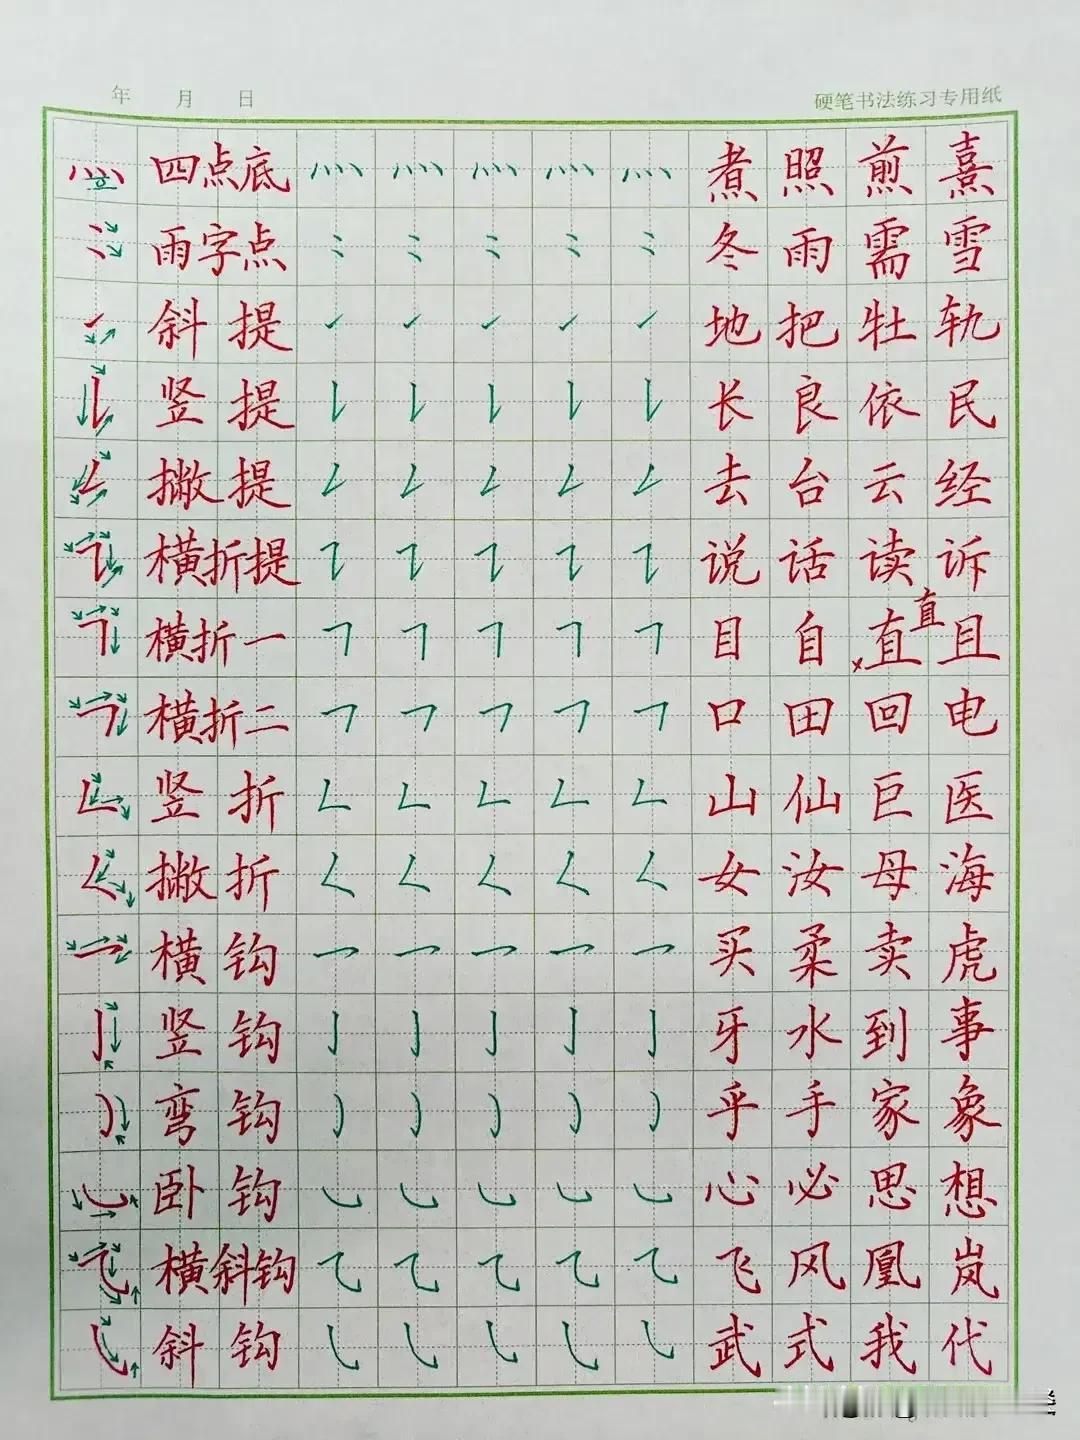 年 月 日 硬笔书法练习专用纸
灬 四点底 灬 灬 灬 灬 灬 煮 照 煎 熹
雨字点 冬 雨 需 雪
斜提 地 把 牡 轨
竖提 长 良 依 民
撇提 去 台 云 经
横折提 说 话 读 诉
横折一 目 自 直 直 且
横折二 口 田 回 电
竖折 山 仙 巨 医
撇折 女 汝 母 海
横钩 买 柔 卖 虎
竖钩 牙 水 到 事
弯钩 乎 手 家 象
卧钩 心 必 思 想
横斜钩 飞 风 凰 岚
斜钩 武 式 我 代